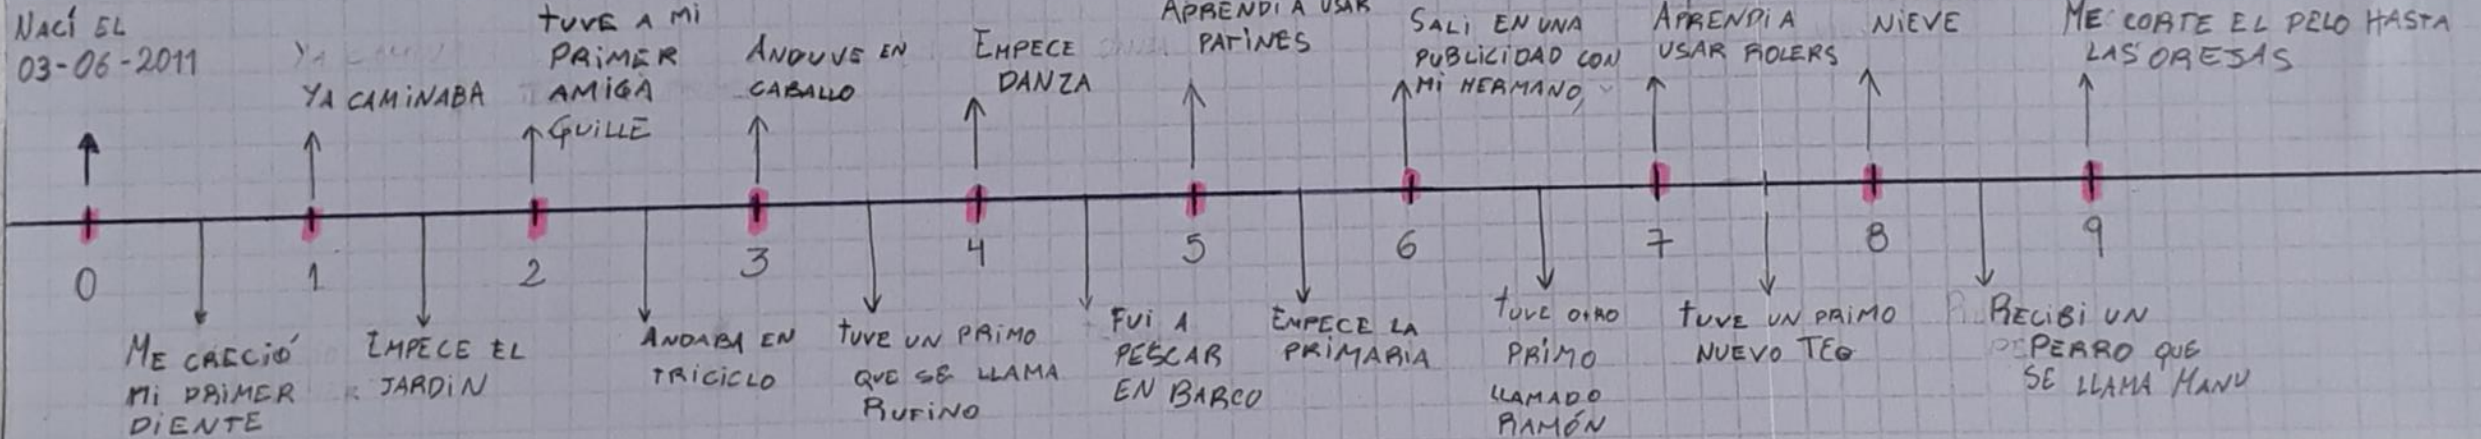 NACÍ EL
03-06-2011
YA CAMINABA
TUVE A MI
PRIMER
AMIGA
GUILLE
ANDUVE EN
CABALLO
EMPECE
DANZA
APRENDI A USAR
PATINES
SALI EN UNA
PUBLICIDAD CON
MI HERMANO,
APRENDI A
USAR ROLERS
NIEVE
ME CORTE EL PELO HASTA
LAS OREJAS
0
1
2
3
4
5
6
7
8
9
ME CRECIÓ
MI PRIMER
DIENTE
EMPECE EL
JARDIN
ANDABA EN
TRICICLO
TUVE UN PRIMO
QUE SE LLAMA
RUFINO
FUI A
PESCAR
EN BARCO
EMPECE LA
PRIMARIA
TUVE OTRO
PRIMO
LLAMADO
RAMÓN
TUVE UN PRIMO
NUEVO TEO
RECIBI UN
PERRO QUE
SE LLAMA MANU